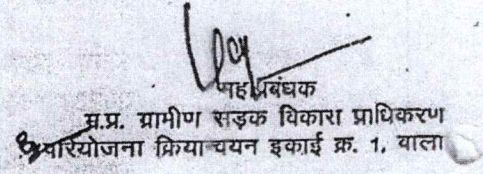 महाप्रबंधक
म.प्र. ग्रामीण सड़क विकास प्राधिकरण
परियोजना क्रियान्वयन इकाई क्र. 1,